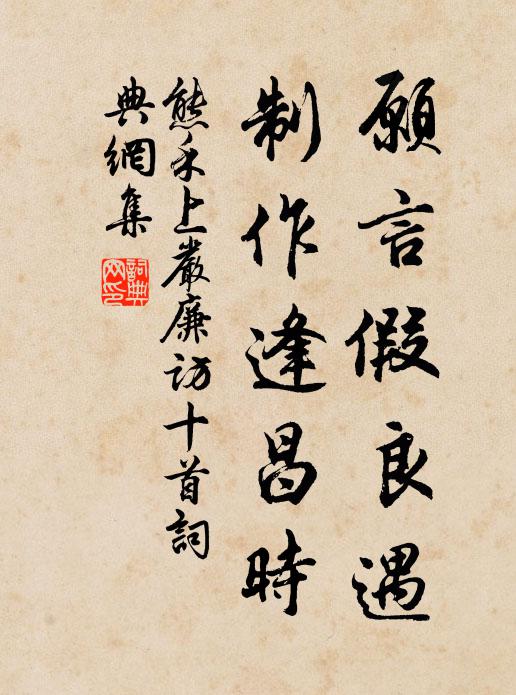 願言假良遇
制作逢昌時
熊禾上嚴廉訪十首詞
典網集
詞典
網印